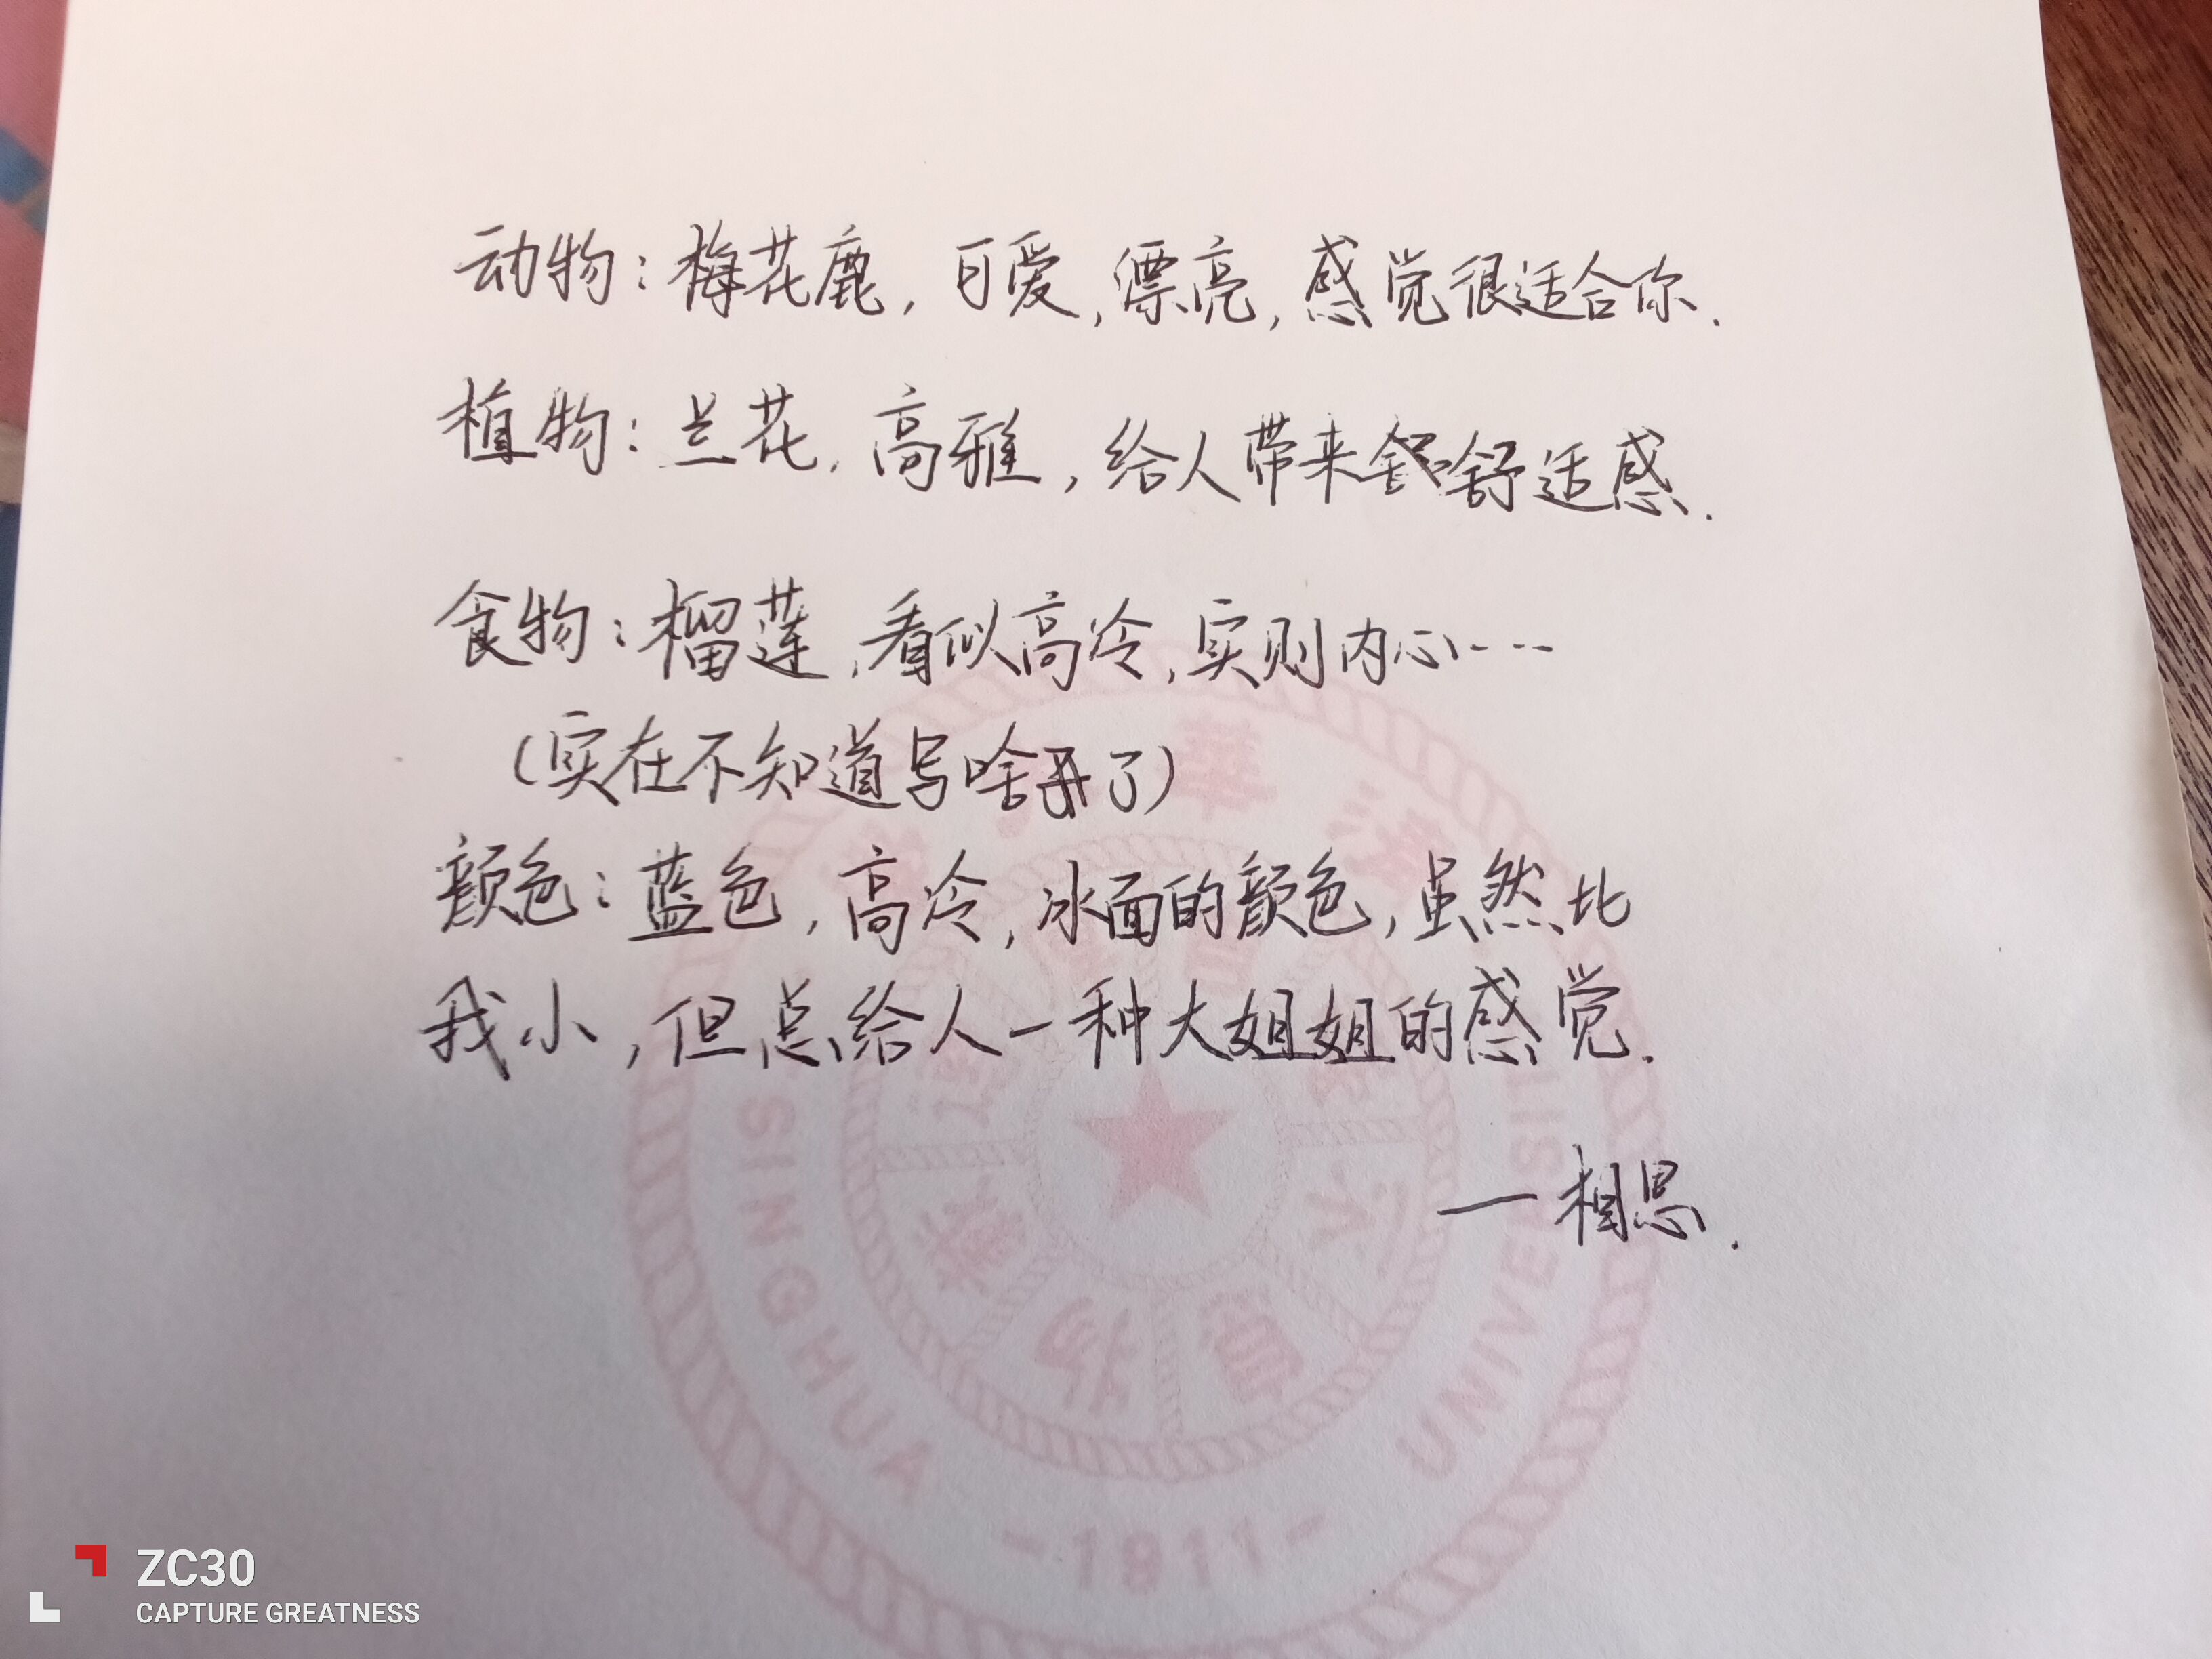 动物：梅花鹿，可爱，漂亮，感觉很适合你.
植物：兰花，高雅，给人带来舒适感.
食物：榴莲，看似高冷，实则内心---
（实在不知道写啥了）
颜色：蓝色，高冷，冰面的颜色，虽然比
我小，但总给人一种大姐姐的感觉.
—相思.
TSINGHUA UNIVERSITY
-1911-
ZC30
CAPTURE GREATNESS